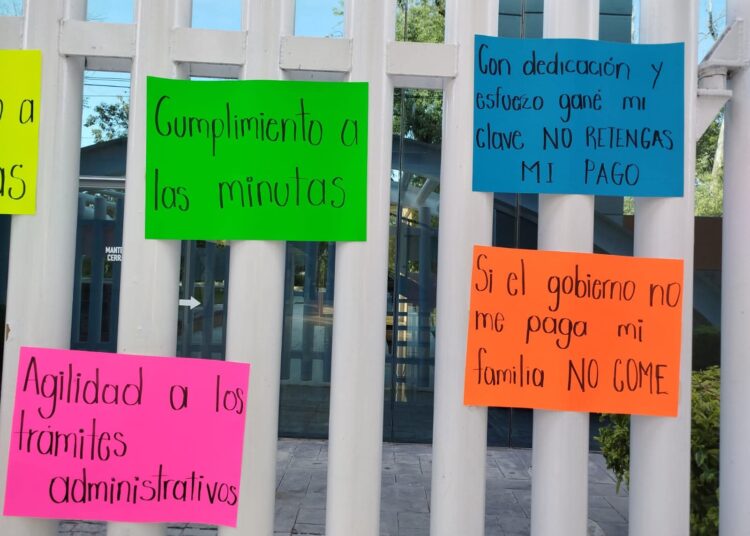 a
as
Cumplimiento a
las minutas
Con dedicación y
esfuezo gané mi
clave NO RETENGAS
MI PAGO
Si el gobierno no
me paga mi
familia NO COME
Agilidad a los
trámites
administrativos